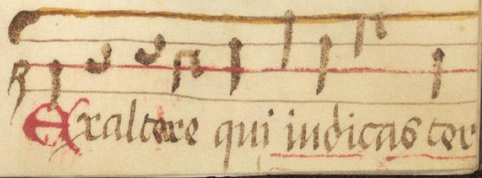 Exaltere qui iudicas ter